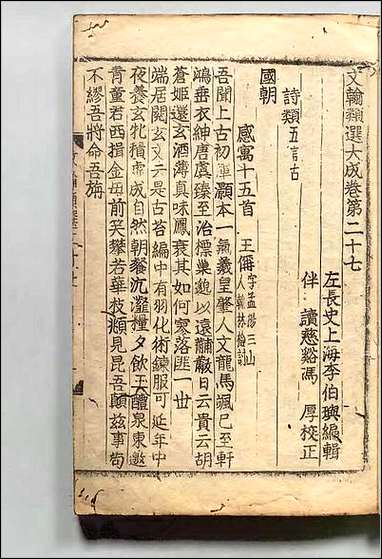 文翰類選大成卷第二十七
左長史上海李伯璵編輯
伴讀慈谿馮厚校正
詩類五言古
國朝
感寓十五首 王偁字孟敭三山人翰林檢討
吾聞上古初渾灝本一氣羲皇肇人文龍馬颯已至軒
鴻垂衣紳唐虞臻至治標巢邈以遠黼黻日云貴云胡
蒼姬還玄酒薄真味鳳衰其如何寥落匪一世
端居閱玄文云是古苔編中有羽化術鍊服可延年中
夜養玄牝積素成自然朝飡沆瀣糧夕飲玉醴泉東邀
青童君西揖金母前笑攀若華枝顧見昆吾顛茲事苟
不繆吾將命吾旃